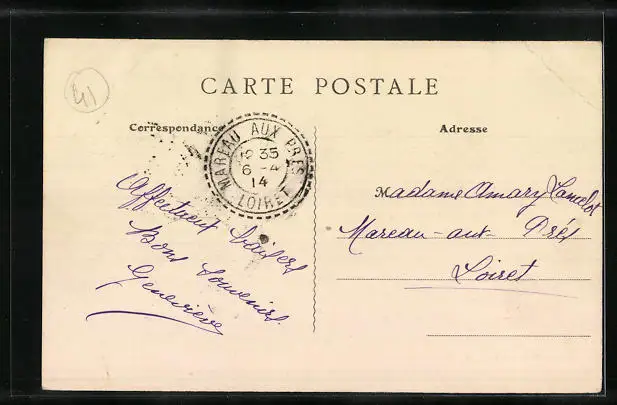 41
CARTE POSTALE
Correspondance
Adresse
MAREAU AUX PRES
35
6 - 4
14
LOIRET
Affectueux baisers
Bons souvenirs
Geneviève
Madame Amary Lancelot
Mareau-aux-Prés
Loiret